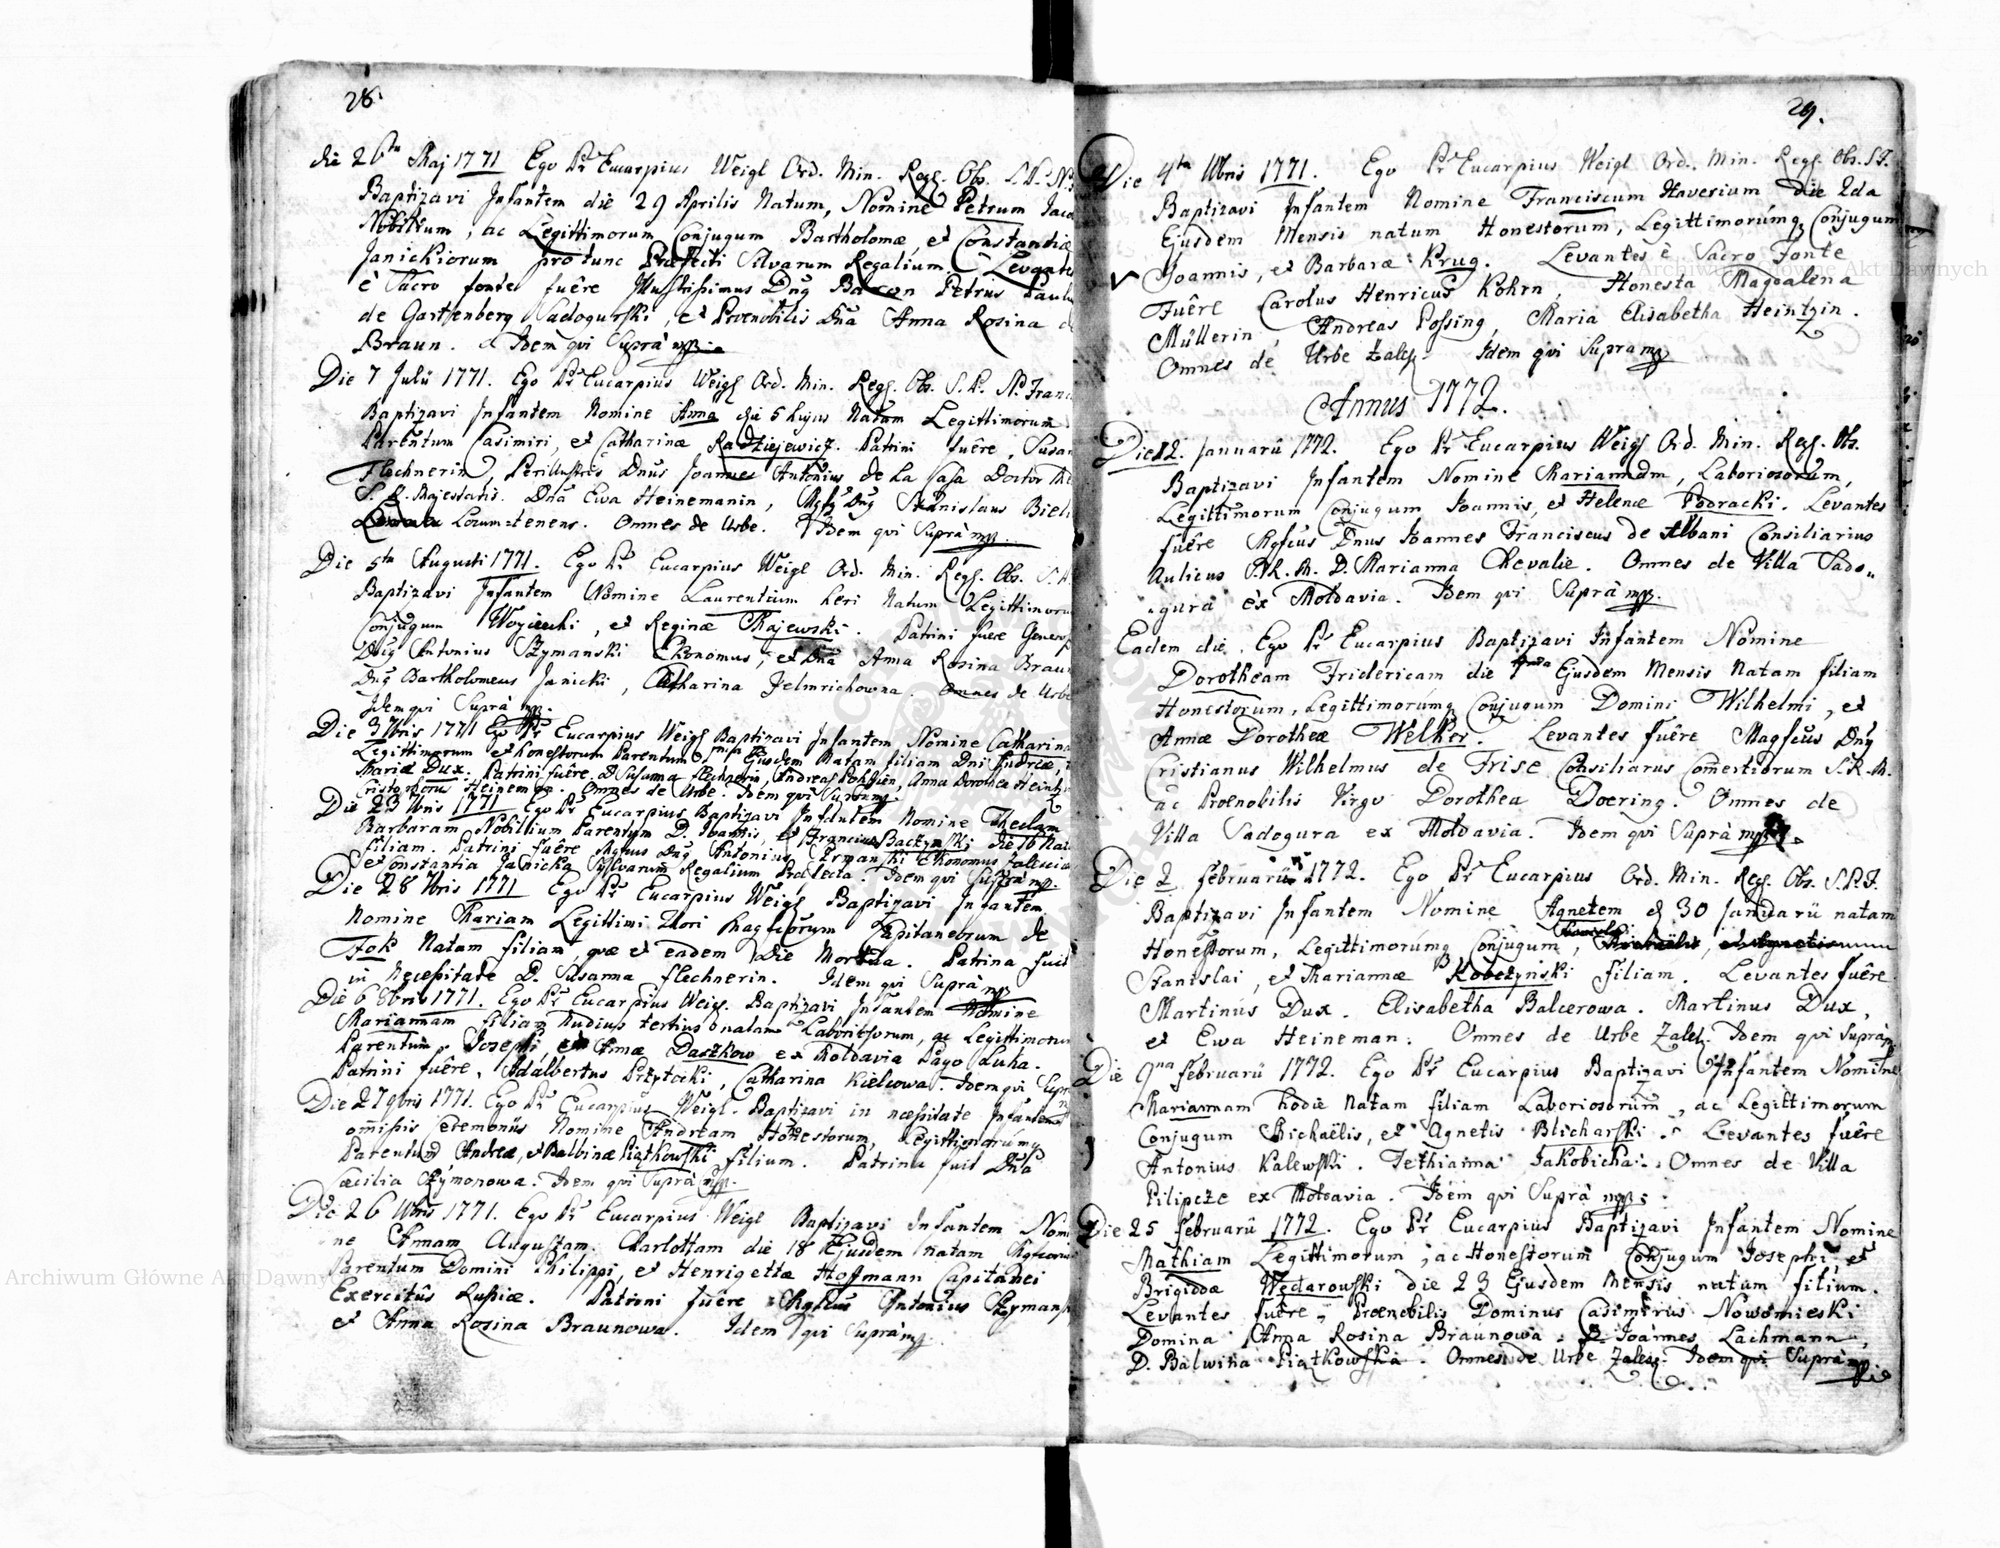 28.
die 26ta Maj 1771 Ego Pr Eucarpius Weigl Ord. Min. Regs. Obs. S.P.N.
Baptizavi Infantem die 29 Aprilis Natum, Nomine Petrum
Nobilium, ac Legittimorum Conjugum Bartholomæ, et Constantiæ
Janickiorum pro tunc Præfecti Silvarum Regalium. Levantes
è Sacro fonte fuêre Illustrissimus Dnq Baron Petrus Paulus
de Gartenberg Sadogurski, et Prænobilis Dna Anna Rosina de
Braun. Idem qvi Suprà mpp
Die 7 Julii 1771. Ego Pr Eucarpius Weigl Ord. Min. Regs. Obs. S. P. N. Franc
Baptizavi Infantem Nomine Anna die 5 hujus Natam Legittimorum
Parentum Casimiri, et Catharinæ Radziejewicz. Patrini fuêre, Susan
Flechnerin, Perillustris Dnus Joannes Antonius de La Casa Doctor
S. R. Majestatis. Dna Ewa Heinemanin, Dnq Stanislaus Biel
Locum=tenens. Omnes de Urbe. Idem qvi Suprà mpp.
Die 5ta Augusti 1771. Ego Pr Eucarpius Weigl Ord. Min. Regs. Obs. S. P.
Baptizavi Infantem Nomine Laurentium heri Natum Legittimorum
Conjugum Woyciechi, et Reginæ Majewski. Patrini fuere Generos
Dnq Antonius Szymanski Ekonomus, et Dna Anna Rosina Braun
Dnq Bartholomeus Janicki, Catharina Jelmrichowna. Omnes de Urbe
Idem qvi Suprà mpp.
Die 3 7bris 1771 Ego Pr Eucarpius Weigl Baptizavi Infantem Nomine Catharina
Legittimorum et honestorum Parentum, Ejusdem Natam filiam Dni Andreæ,
Mariæ Dux. Patrini fuêre. D Susanna Flechnerin, Andreas Anna Dorothea Heintz
Cristophorus Heineman. Omnes de Urbe. Idem qvi Supra mpp.
Die 23 7bris 1771 Ego Pr Eucarpius Baptizavi Infantem Nomine Theclam
Barbaram Nobilium Parentum D. Joannis, et Franciscæ Baczynski die 16 Nata
filiam. Patrini fuêre Dnq Antonius Szymanski Ekonomus Zalescia
et Constantia Janicka Sylvarum Regalium Præfecta. Idem qvi Suprà mp.
Die 28 7bris 1771 Ego Pr Eucarpius Weigl Baptizavi Infantem
Nomine Mariam Legittimi Thori Magficorum Capitaneorum de
Fok Natam filiam, quæ et eadem Die Mortua. Patrina fuit
in Necessitate D. Susanna Flechnerin. Idem qvi Suprà mpp
Die 6 8bris 1771. Ego Pr Eucarpius Weigl. Baptizavi Infantem Nomine
Mariannam filiam Nudius tertius natam Laboriosorum, ac Legittimorum
Parentum. Josephi et Annæ Daszkow ex Moldavia Pago Luka.
Patrini fuêre, Adalbertus Przytocki, Catharina Kielcowa. Idem qvi Supr
Die 27 9bris 1771. Ego Pr Eucarpius Weigl. Baptizavi in necessitate Infantem
omissis Ceremoniis Nomine Andream Honestorum, Legittimorúmq
Parentum Andreæ, et Balbinæ Piątkowski filium. Patrina fuit Dna
Cæcilia Szymonowa. Idem qvi Suprà mpp.
Die 26 Xbris 1771. Ego Pr Eucarpius Weigl Baptizavi Infantem Nomi
ne Annam Augustam Charlottam die 18 Ejusdem natam
Parentum Domini Philippi, et Henrigettæ Hofmann Capitanei
Exercitûs Russiæ. Patrini fuêre Antonius Szymansk
et Anna Rosina Braunowa. Idem qvi Suprà mpp.
29.
Die 4ta Xbris 1771. Ego Pr Eucarpius Weigl Ord. Min. Regs. Obs. S.F.
Baptizavi Infantem Nomine Franciscum Xaverium Die 2da
Ejusdem Mensis natum Honestorum, Legittimorúmq Conjugum
Joannis, et Barbaræ Krug. Levantes è Sacro Fonte
Fuêre Carolus Henricus Kohrn, Honesta Magdalena
Müllerin, Andreas Possing, Maria Elisabetha Heintzin.
Omnes de Urbe Zalesz. Idem qvi Supra mpp
Annus 1772.
Die 12. Januarii 1772. Ego Pr Eucarpius Weigl Ord. Min. Regs. Obs.
Baptizavi Infantem Nomine Mariannam, Laboriosorum,
Legittimorum Conjugum Joannis, et Helenæ Podracki. Levantes
fuêre Mgfcus Dnus Joannes Franciscus de Albani Consiliarius
Aulicus S. R. M. D. Marianna Chevalie. Omnes de Villa Sado„
gura ex Moldavia. Idem qvi Suprà mpp.
Eadem die. Ego Pr Eucarpius Baptizavi Infantem Nomine
Dorotheam Fridericam die Ejusdem Mensis Natam filiam
Honestorum, Legittimorúmq Conjugum Domini Wilhelmi, et
Annæ Dorotheæ Welker. Levantes fuêre Magfcus Dnq
Cristianus Wilhelmus de Frise Consiliarus Comertiorum S. R. M.
ac Prænobilis Virgo Dorothea Doering. Omnes de
Villa Sadogura ex Moldavia. Idem qvi Suprà mpp.
Die 2 Februarii 1772. Ego Pr Eucarpius Ord. Min. Regs. Obs. S.P.F.
Baptizavi Infantem Nomine Agnetem d 30 Januarii natam
Honestorum, Legittimorúmq Conjugum,
Stanislai, et Mariannæ Kobczynski filiam. Levantes fuêre
Martinus Dux. Elisabetha Balcerowa. Martinus Dux,
et Ewa Heineman. Omnes de Urbe Zalesz. Idem qvi Suprà mpp
Die 9na Februarii 1772. Ego Pr Eucarpius Baptizavi Infantem Nomine
Mariannam hodie natam filiam Laboriosorum, ac Legittimorum
Conjugum Michaëlis, et Agnetis Blicharski. Levantes fuêre
Antonius Kalewski. Tethianna Jakobicha. Omnes de Villa
Pilipcze ex Moldavia. Idem qvi Suprà mpp.
Die 25 Februarii 1772. Ego Pr Eucarpius Baptizavi Infantem Nomine
Mathiam Legittimorum, ac Honestorum Conjugum Josephi, et
Brigiddæ Wędarowski die 23 Ejusdem Mensis natum filium.
Levantes fuêre, Prænobilis Dominus Casimirus Nowomieski
Domina Anna Rosina Braunowa. D Joannes Lachmann,
D. Balwina Piątkowska. Omnes de Urbe Zalesz. Idem qvi Suprà mpp
Archiwum Główne Akt Dawnych
Archiwum Główne Akt Dawnych